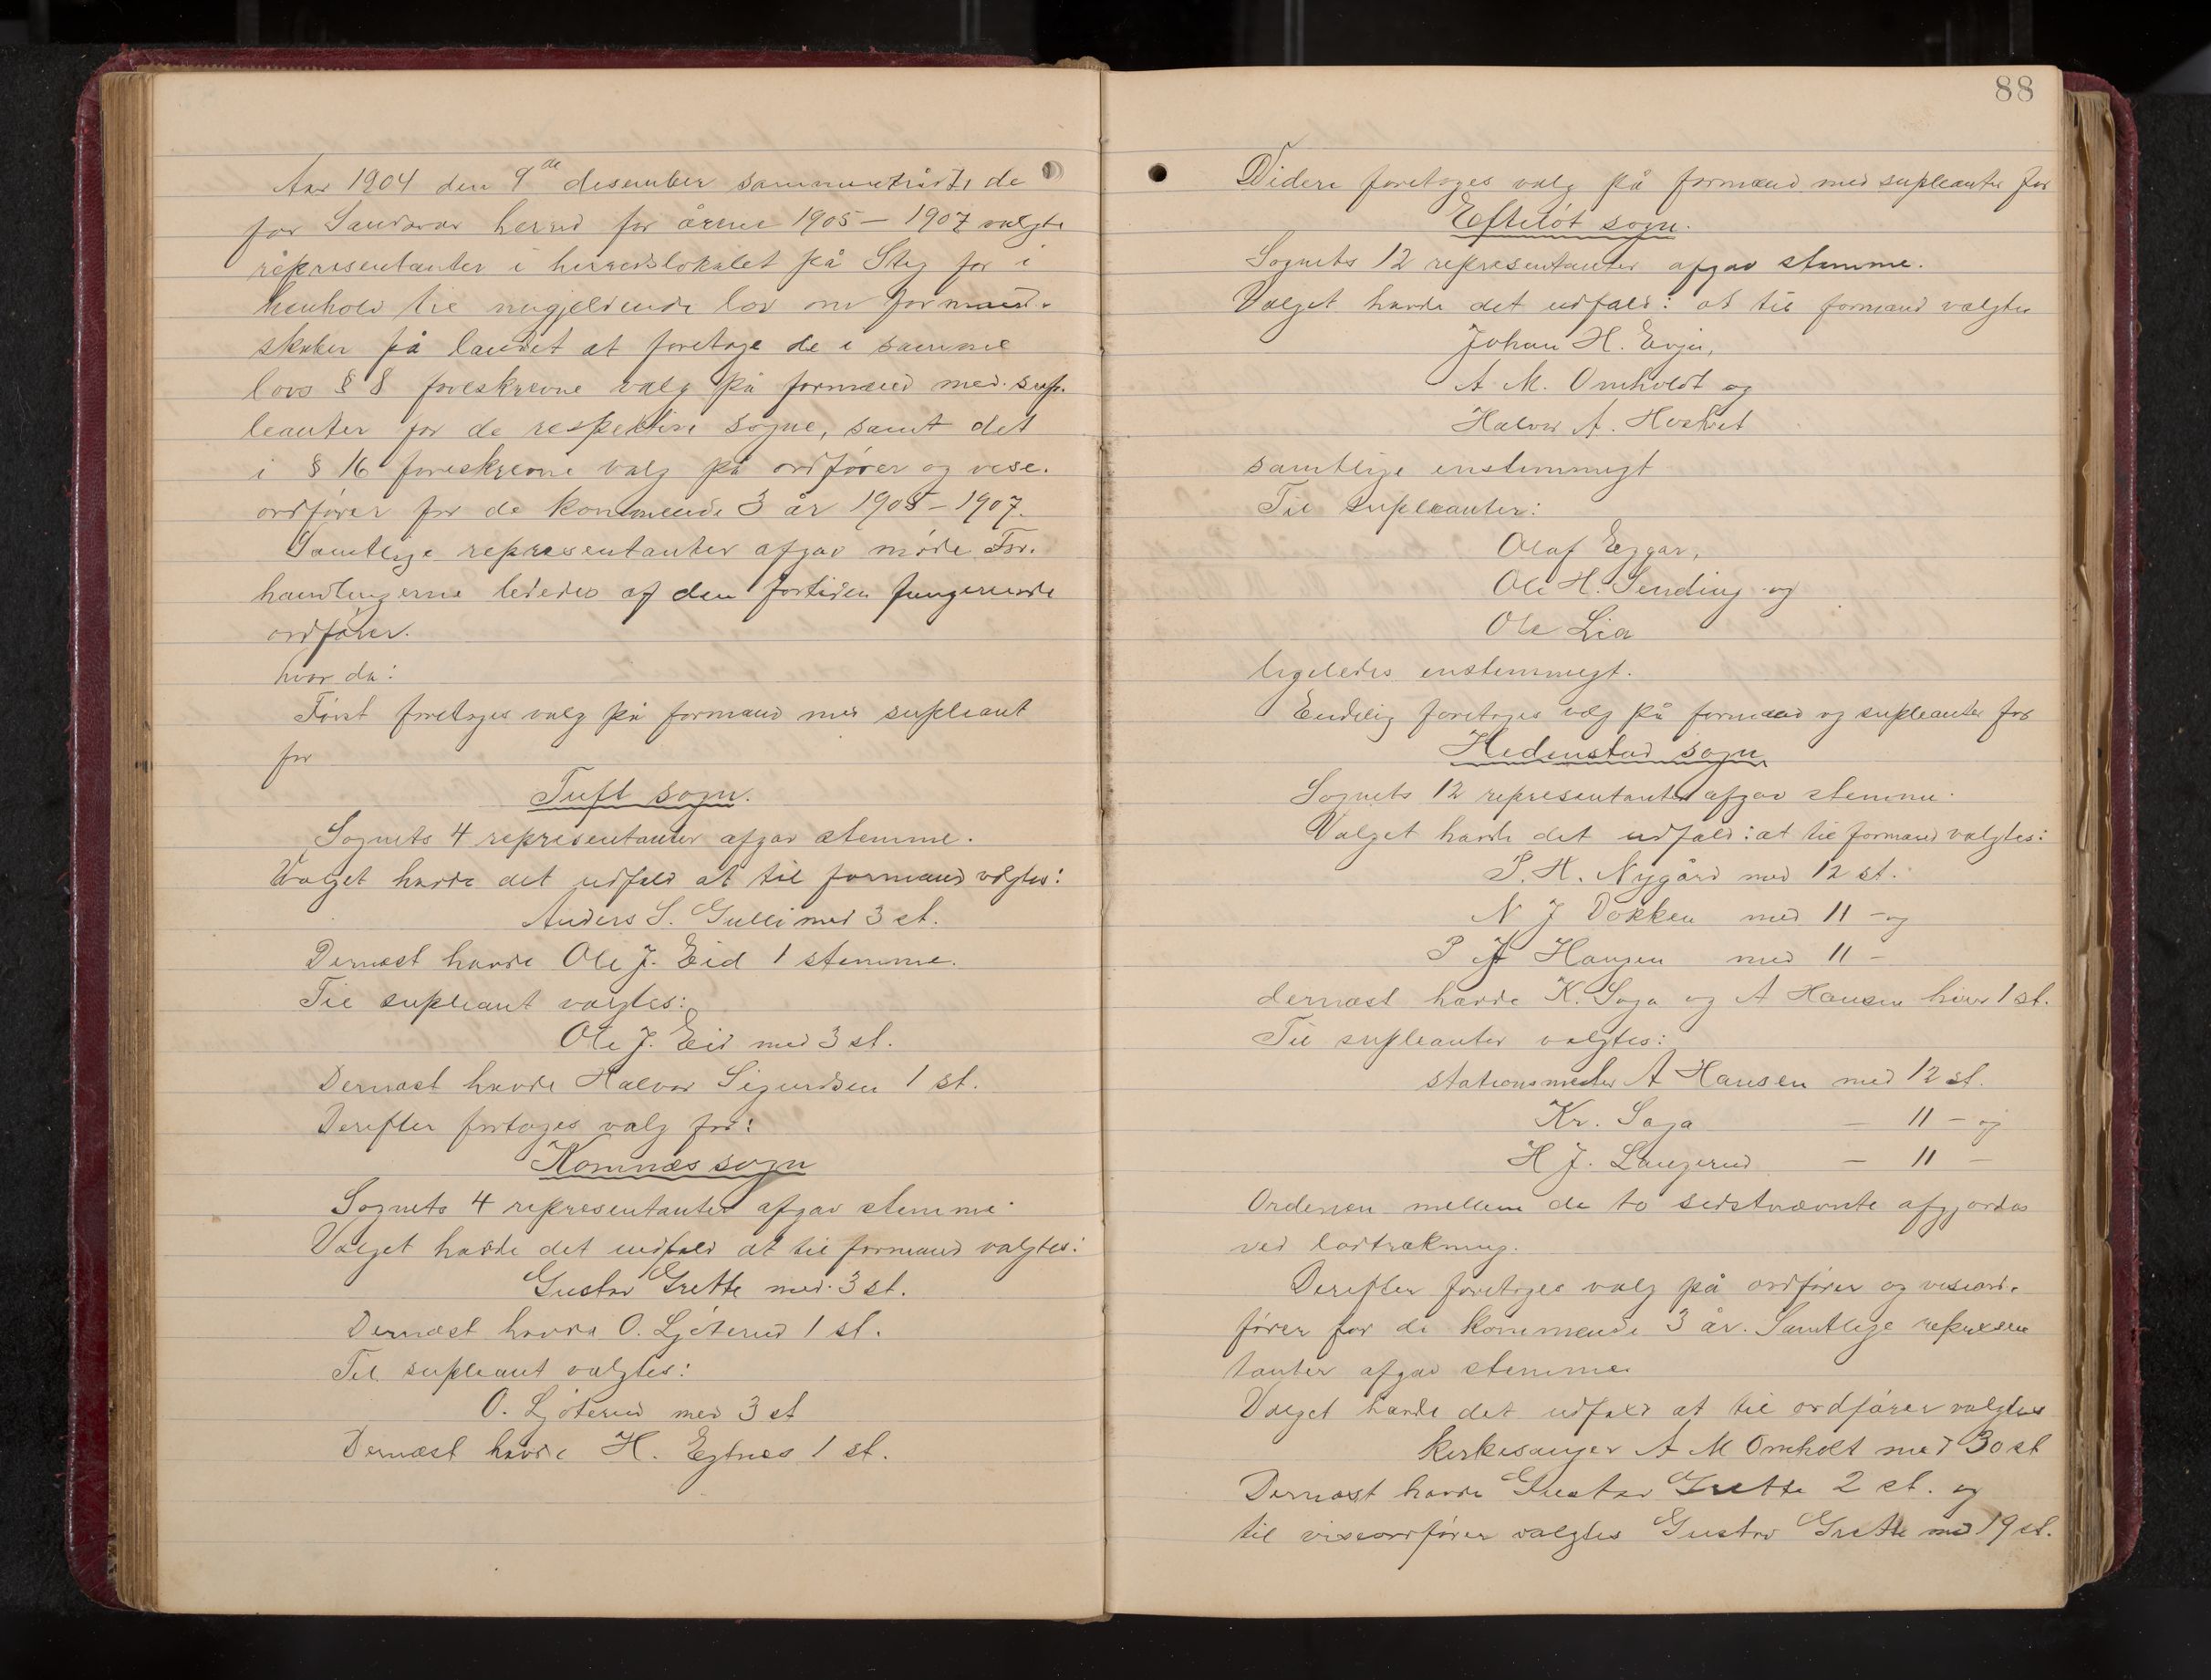 Aar 1904 den 9de desember sammentrådte de
for Sandsvær herred for årene 1905 – 1907 valgte
representanter i herredslokalet på Steg for i
henhold til nugjeldende lov om formand-
skaber på landet at foretage de i samme
lovs § 8 foreskrevne valg på formænd med sup-
leanter for de respektive sogne, samt det
i § 16 foreskrevne valg på ordfører og vise-
ordfører for de kommende 3 år 1905 – 1907.
Samtlige representanter afgav møde. For-
handlingerne lededes af den fortiden fungerende
ordfører.
hvor da:
Først foretoges valg på formand med supleant
for
Tuft sogn.
Sognets 4 representanter afgav stemme.
Valget havde det udfald at til formand valgtes:
Anders S. Gulli med 3 st.
Dernæst havde Ole J. Eid 1 stemme.
Til supleant valgtes:
Ole J. Eid med 3 st.
Dernæst havde Halvor Sigurdsen 1 st.
Derefter fortoges valg for:
Komnæs sogn
Sognets 4 representanter afgav stemme.
Valget havde det udfald at til formand valgtes:
Gustav Grette med 3 st.
Dernæst havde O. Ljøterud 1 st.
Til supleant valgtes:
O. Ljøterud med 3 st
Dernæst havde H. Egtnes 1 st.
88
Videre foretoges valg på formænd med supleanter for
Efteløt sogn.
Sognets 12 representanter afgav stemme.
Valget havde det udfald: at til formænd valgtes
Johan H. Evju,
A. M. Omholdt og
Halvor A.
samtlige enstemmigt
Til supleanter:
Olaf Eggar,
Ole H. Sending og
Ole Lia
ligeledes enstemmigt.
Endelig foretoges valg på formænd og supleanter for
Hedenstad sogn
Sognets 12 representanter afgav stemme.
Valget havde det udfald: at til formænd valgtes:
P. H. Nygård med 12 st.
N J Dokken med 11 – og
P A Haugen med 11 –
dernæst havde K. Saga og A Hansen hver 1 st.
Til supleanter valgtes:
stationsmester A Hansen med 12 st.
Kr. Saga – 11 – og
H J. Langerud – 11 –
Ordenen mellem de to sidstnævnte afgjordes
ved lodtrækning.
Derefter foretoges valg på ordfører og viseord-
fører for de kommende 3 år. Samtlige represen
tanter afgav stemme.
Valget havde det udfald at til ordfører valgtes
kirkesanger A M Omholt med 30 st
Dernæst havde Gustav Grette 2 st. og
til viseordfører valgtes Gustav Grette med 19 st.